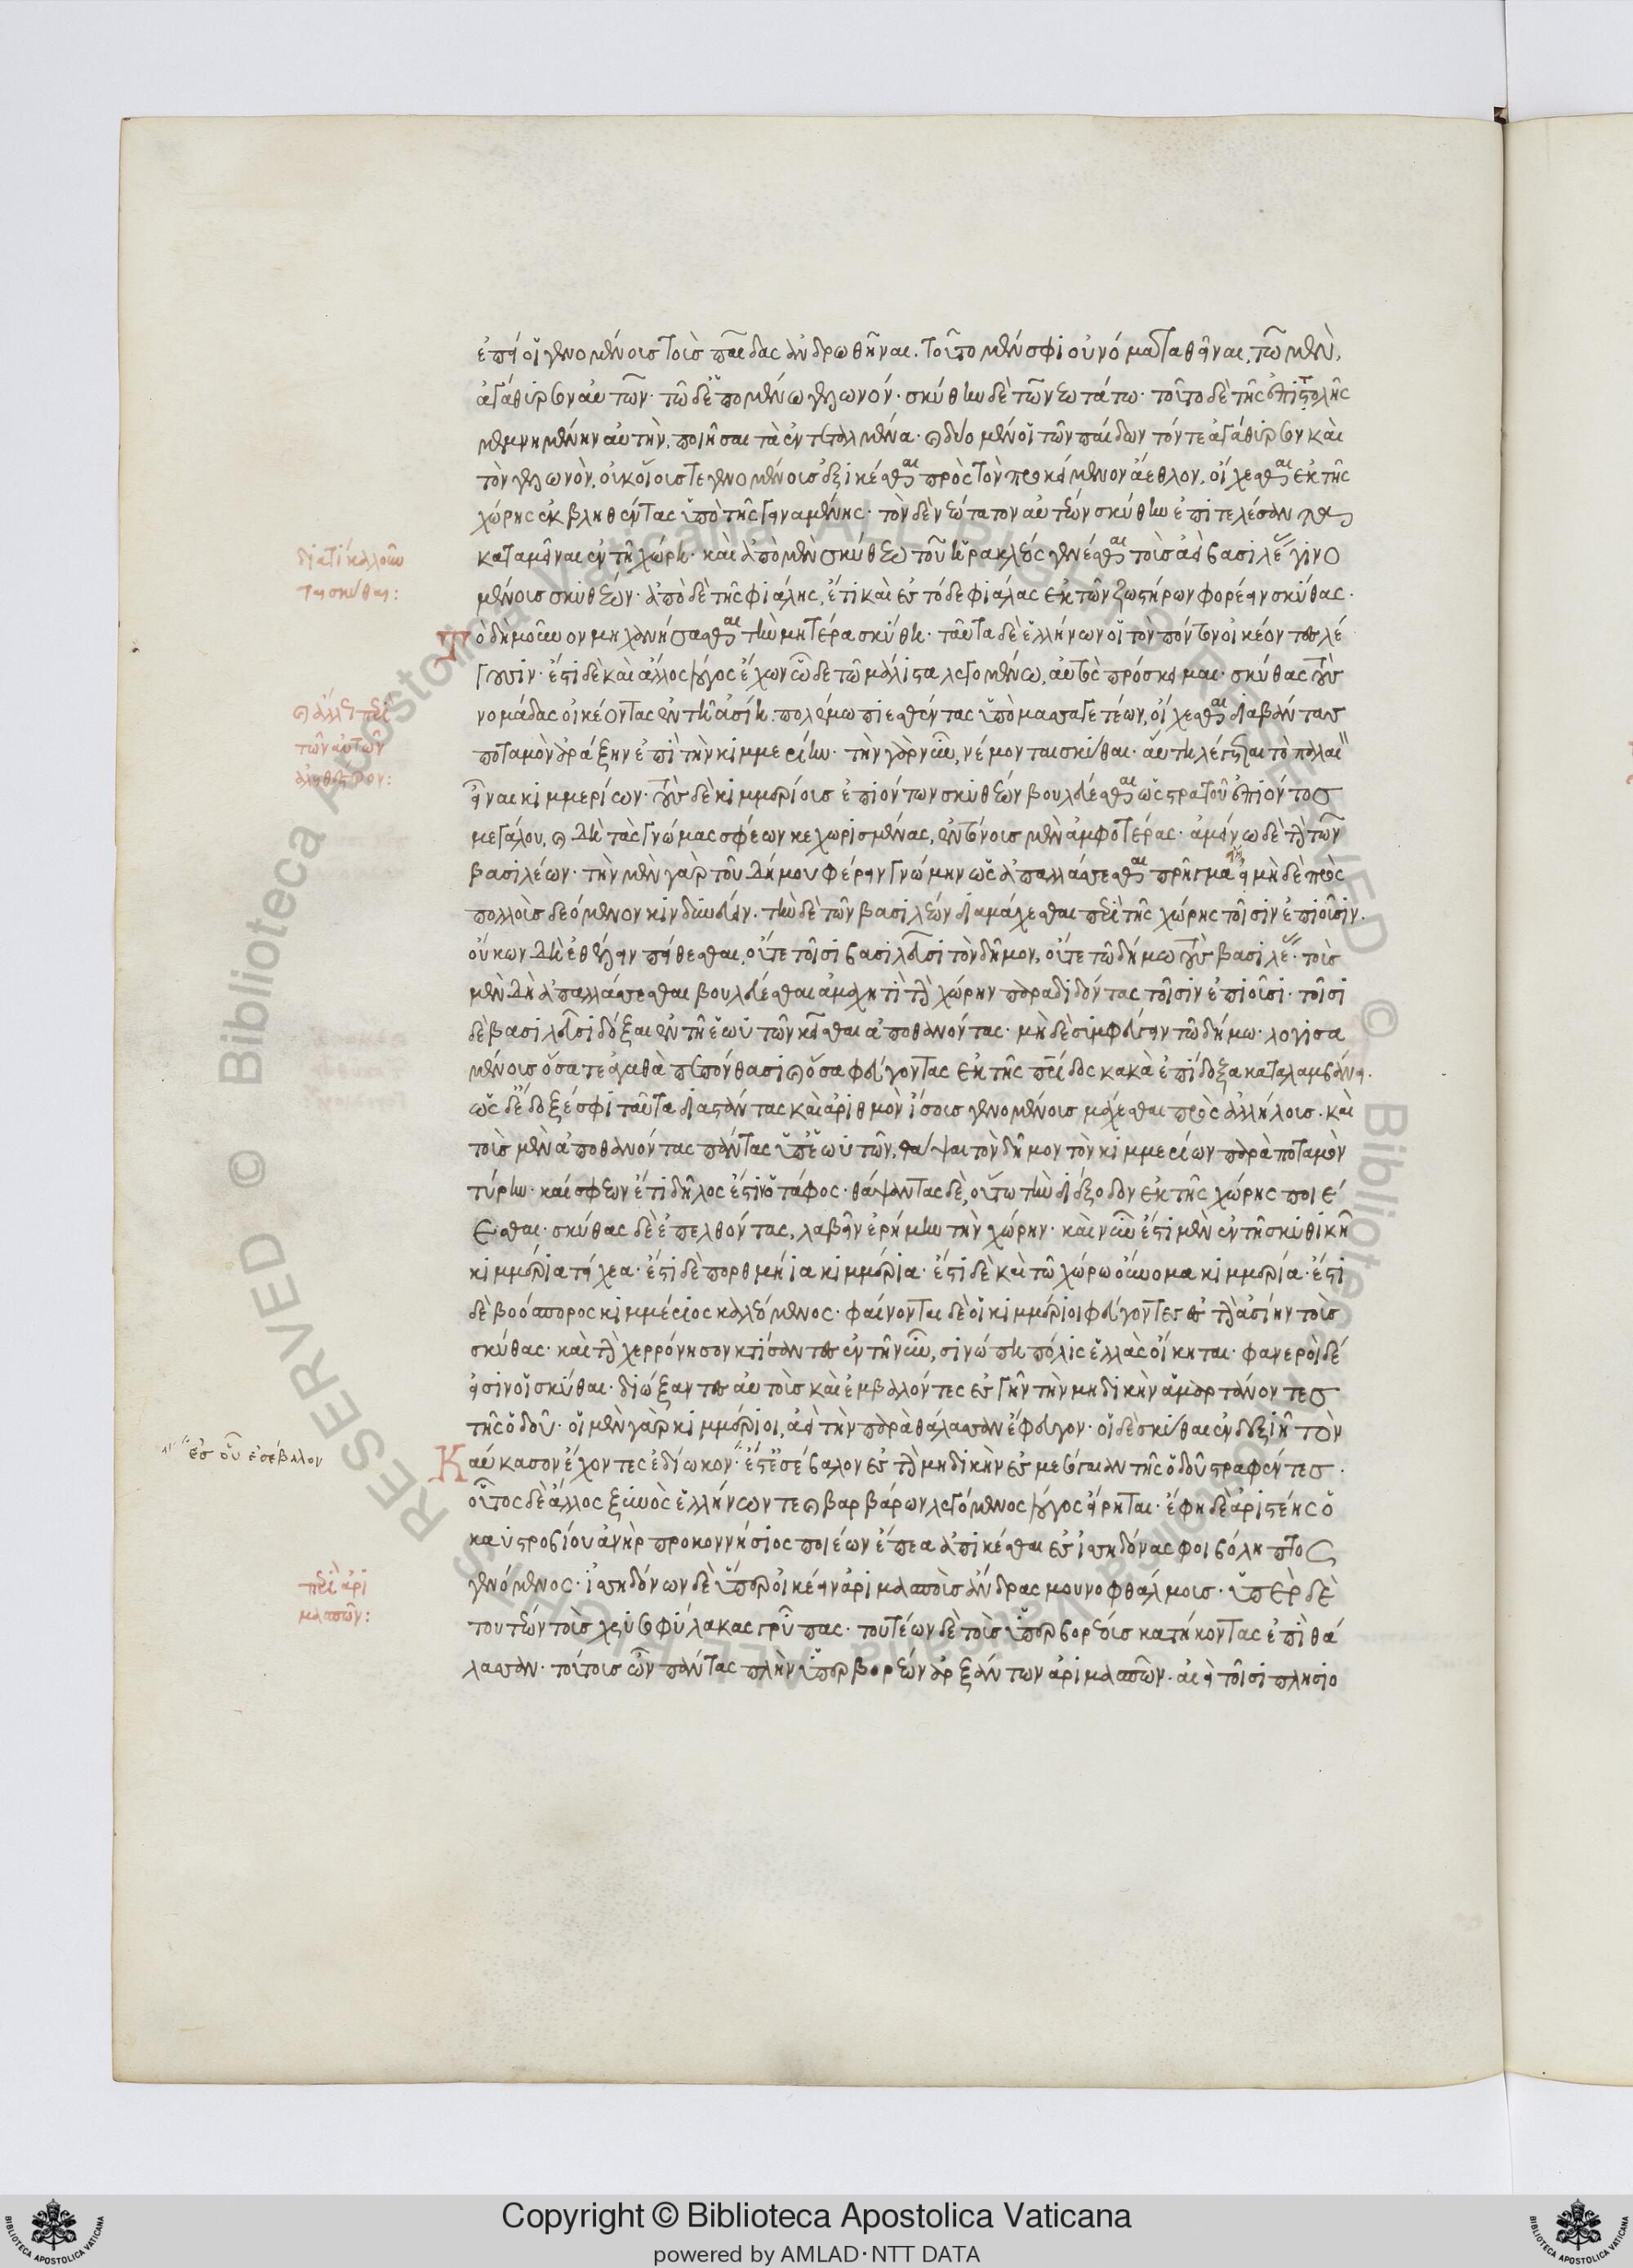 ἐπεί οἱ γενομένους τοὺς παῖδας ἀνδρωθῆναι. τοῦτο μέν σφι οὐνόματα θεῖναι, τῶ μὲν,
ἀγάθυρσον αὐτῶν· τῶ δ' ἑπομένω γελωνόν· σκύθην δὲ τῶ νεωτάτω· τοῦτο δὲ τῆς ἐπιστολῆς
μεμνημένην αὐτὴν, ποιῆσαι τὰ ἐντεταλμένα· καὶ δύο μὲν οἱ τῶν παίδων τόν τε ἀγάθυρσον καὶ
τὸν γελωνὸν, οὐκ οἵους τε γενομένους ἐξικέσθαι πρὸς τὸν προκείμενον ἄεθλον, οἴχεσθαι ἐκ τῆς
χώρης ἐκβληθέντας ὑπὸ τῆς γειναμένης· τὸν δὲ νεώτατον αὐτέων σκύθην ἐπιτελέσαντα
διατί καλοῦν
ται σκύθαι:
καταμεῖναι ἐν τῆ χώρη· καὶ ἀπὸ μὲν σκύθεω τοῦ ἡρακλέος γενέσθαι τοὺς ἀεὶ βασιλέας γινο
μένους σκυθέων· ἀπὸ δὲ τῆς φιάλης, ἔτι καὶ ἐς τόδε φιάλας ἐκ τῶν ζωστήρων φορέειν σκύθας·
τὸ δὴ μοῦνον μηχανήσασθαι τὴν μητέρα σκύθη· ταῦτα δὲ ἑλλήνων οἱ τὸν πόντον οἰκέοντες λέ
γουσιν· ἔστι δὲ καὶ ἄλλος λόγος ἔχων ὧδε τῶ μάλιστα λεγομένω, αὐτὸς πρόσκειμαι· σκύθας τοὺς
καὶ ἄλλως περὶ
τῶν αὐτῶν
ἀληθέστερον:
νομάδας οἰκέοντας ἐν τῆ ἀσίη. πολέμω πιεσθέντας ὑπὸ μασσαγετέων, οἴχεσθαι διαβάντας
ποταμὸν ἀράξην ἐπὶ τὴν κιμμερίην· τὴν γὰρ νῦν, νέμονται σκύθαι· αὕτη λέγεται τὸ παλαι
εἶναι κιμμερίων· τοὺς δὲ κιμμερίους ἐπιόντων σκυθέων βουλεύεσθαι ὡς στρατοῦ ἐπιόντος
μεγάλου, καὶ δὴ τὰς γνώμας σφέων κεχωρισμένας, ἐντόνους μὲν ἀμφοτέρας· ἀμείνω δὲ τὴν τῶν
βασιλέων· τὴν μὲν γὰρ τοῦ δήμου φέρειν γνώμην ὡς ἀπαλλάσσεσθαι πρῆγμα εἴη μὴ δὲ πρὸς
πολλοὺς δεόμενον κινδυνεύειν· τὴν δὲ τῶν βασιλέων διαμάχεσθαι περὶ τῆς χώρης τοῖσιν ἐπιοῦσιν.
οὔκων δὴ ἐθέλειν πείθεσθαι, οὔτε τοῖσι βασιλεῦσι τὸν δῆμον, οὔτε τῶ δήμω τοὺς βασιλέας· τοὺς
μὲν δὴ ἀπαλλάσσεσθαι βουλεύεσθαι ἀμαχητὶ τὴν χώρην παραδιδόντας τοῖσιν ἐπιοῦσι· τοῖσι
δὲ βασιλεῦσι δόξαι ἐν τῆ ἑωυτῶν κεῖσθαι ἀποθανόντας· μὴ δὲ συμφεύγειν τῶ δήμω· λογισα
μένους ὅσα τε ἀγαθὰ πεπόνθασι καὶ ὅσα φεύγοντας ἐκ τῆς πατρίδος κακὰ ἐπίδοξα καταλαμβάνει.
ὡς δὲ δόξέ σφι ταῦτα διαστάντας καὶ ἀριθμὸν ἴσους γενομένους μάχεσθαι πρὸς ἀλλήλους. καὶ
τοὺς μὲν ἀποθανόντας πάντας ὑπ' ἑωυτῶν, θάψαι τὸν δῆμον τὸν κιμμερίων παρὰ ποταμὸν
τύρην· καί σφεων ἔτι δῆλος ἐστὶν ὁ τάφος· θάψαντας δὲ, οὕτω τὴν ἔξοδον ἐκ τῆς χώρης ποιέ
εσθαι· σκύθας δὲ ἐπελθόντας, λαβεῖν ἐρήμην τὴν χώρην· καὶ νῦν ἔστι μὲν ἐν τῆ σκυθικῆ
κιμμέρια τείχεα· ἔστι δὲ πορθμήια κιμμέρια· ἔστι δὲ καὶ τῶ χώρω οὔνομα κιμμερία· ἔστι
δὲ βοόσπορος κιμμέριος καλεόμενος· φαίνονται δὲ οἱ κιμμέριοι φεύγοντες ἐς τὴν ἀσίην τοὺς
σκύθας· καὶ τὴν χερρόνησον κτίσαντες ἐν τῆ νῦν, σινώπη πόλις ἑλλὰς οἴκηται· φανεροὶ δέ
εἰσιν οἱ σκύθαι· διώξαντες αὐτοὺς καὶ ἐμβαλόντες ἐς γῆν τὴν μηδικὴν ἁμαρτάνοντες
τῆς ὁδοῦ· οἱ μὲν γὰρ κιμμέριοι, ἀεὶ τὴν παρὰ θάλασσαν ἔφευγον· οἱ δὲ σκύθαι ἐν δεξιῆ τὸν
ἐς οὗ ἐσέβαλον
καύκασον ἔχοντες ἐδίωκον· ἔστ' ἐσέβαλον ἐς τὴν μηδικὴν ἐς μεσόγαιαν τῆς ὁδοῦ στραφέντες·
οὗτος δὲ ἄλλος ξυνὸς ἑλλήνων τε καὶ βαρβάρων λεγόμενος λόγος εἴρηται· ἔφη δὲ ἀριστέης ὁ
καϋστροβίου ἀνὴρ προκοννήσιος ποιέων ἔπεα ἀπικέσθαι ἐς ἰσσηδόνας φοιβόλαμπτος
περὶ ἀρι
μασπῶν:
γενόμενος· ἰσσηδόνων δὲ ὑπεροικέειν ἀριμασποὺς ἄνδρας μουνοφθάλμους· ὑπὲρ δὲ
τουτέων τοὺς χρυσοφύλακας γρῦπας· τουτέων δὲ τοὺς ὑπερβορέους κατήκοντας ἐπὶ θά
λασσαν· τούτους ὦν πάντας πλὴν ὑπερβορέων ἀρξάντων ἀριμασπῶν· αἰεὶ τοῖσι πλησιο
© Biblioteca Apostolica Vaticana ALL RIGHTS RESERVED
Copyright © Biblioteca Apostolica Vaticana
powered by AMLAD·NTT DATA
BIBLIOTECA APOSTOLICA VATICANA
BIBLIOTECA APOSTOLICA VATICANA